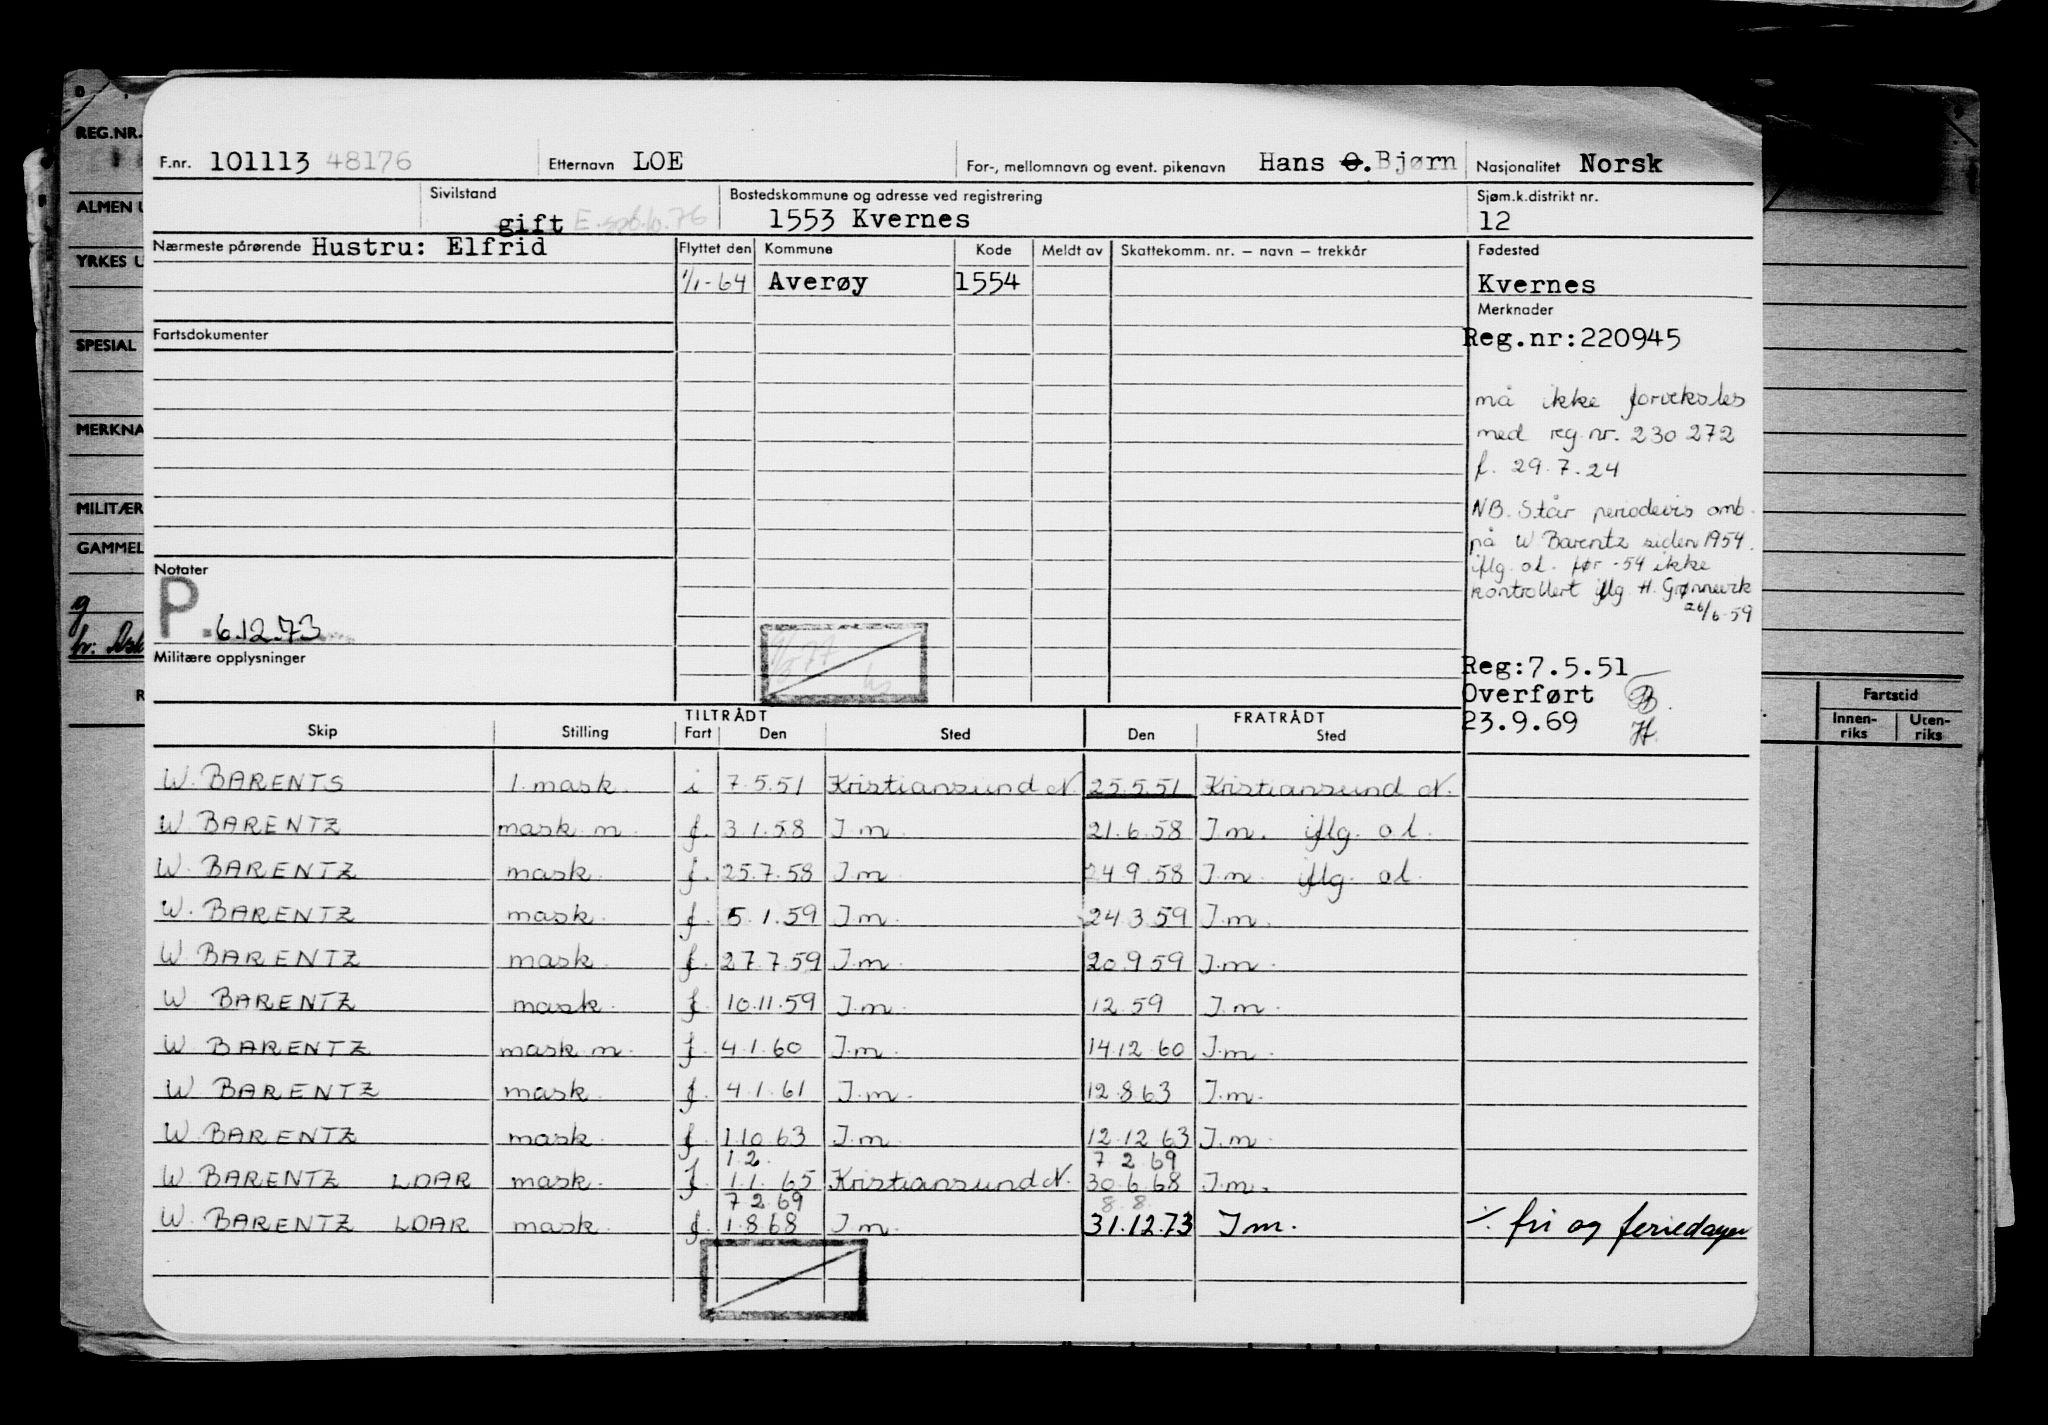 REG.NR.
ALMEN U
YRKES U
SPESIAL
MERKNA
MILITÆR
GAMMEL
Fartstid
Innen-riks Uten-riks
F.nr. 101113 48176 Etternavn LOE For-, mellomnavn og event. pikenavn Hans O. Bjørn Nasjonalitet Norsk
Sivilstand gift Bostedskommune og adresse ved registrering 1553 Kvernes Sjøm.k.distrikt nr. 12
Nærmeste pårørende Hustru: Elfrid Flyttet den Kommune Kode Meldt av Skattekomm. nr. – navn – trekkår Fødested
1/1-64 Averøy 1554 Kvernes
Merknader
Fartsdokumenter
Reg.nr:220945
må ikke forveksles
med reg.nr. 230 272
f. 29.7.24
NB. Står periodevis omb.
på W Barentz siden 1954.
iflg. ol. før -54 ikke
kontrollert iflg H. Grønnevik
26/6-59
Notater
P. 6.12.73
Militære opplysninger
Reg:7.5.51
Overført
23.9.69
TILTRÅDT FRATRÅDT
Skip Stilling Fart Den Sted Den Sted
W. BARENTS 1. mask. i 7.5.51 Kristiansund N. 25.5.51 Kristiansund N.
W. BARENTZ mask m. f. 3.1.58 I.m. 21.6.58 I.m. iflg. ol.
W. BARENTZ mask. f. 25.7.58 I.m. 24.9.58 I.m. iflg. ol.
W. BARENTZ mask. f. 5.1.59 I.m. 24.3.59 I.m.
W. BARENTZ mask. f. 27.7.59 I.m. 20.9.59 I.m.
W BARENTZ mask. f. 10.11.59 I.m. 12.59 I.m.
W BARENTZ mask m. f. 4.1.60 I.m. 14.12.60 I.m.
W BARENTZ mask. f. 4.1.61 I.m. 12.8.63 I.m.
W. BARENTZ mask. f. 1.10.63 I.m. 12.12.63 I.m.
1.2. 7.2.69
W. BARENTZ LDAR mask. f. 1.1.65 Kristiansund N. 30.6.68 I.m.
7.2.69 8.8.
W. BARENTZ LDAR mask. f. 1.8.68 I.m. 31.12.73 I m. ./. fri og feriedager